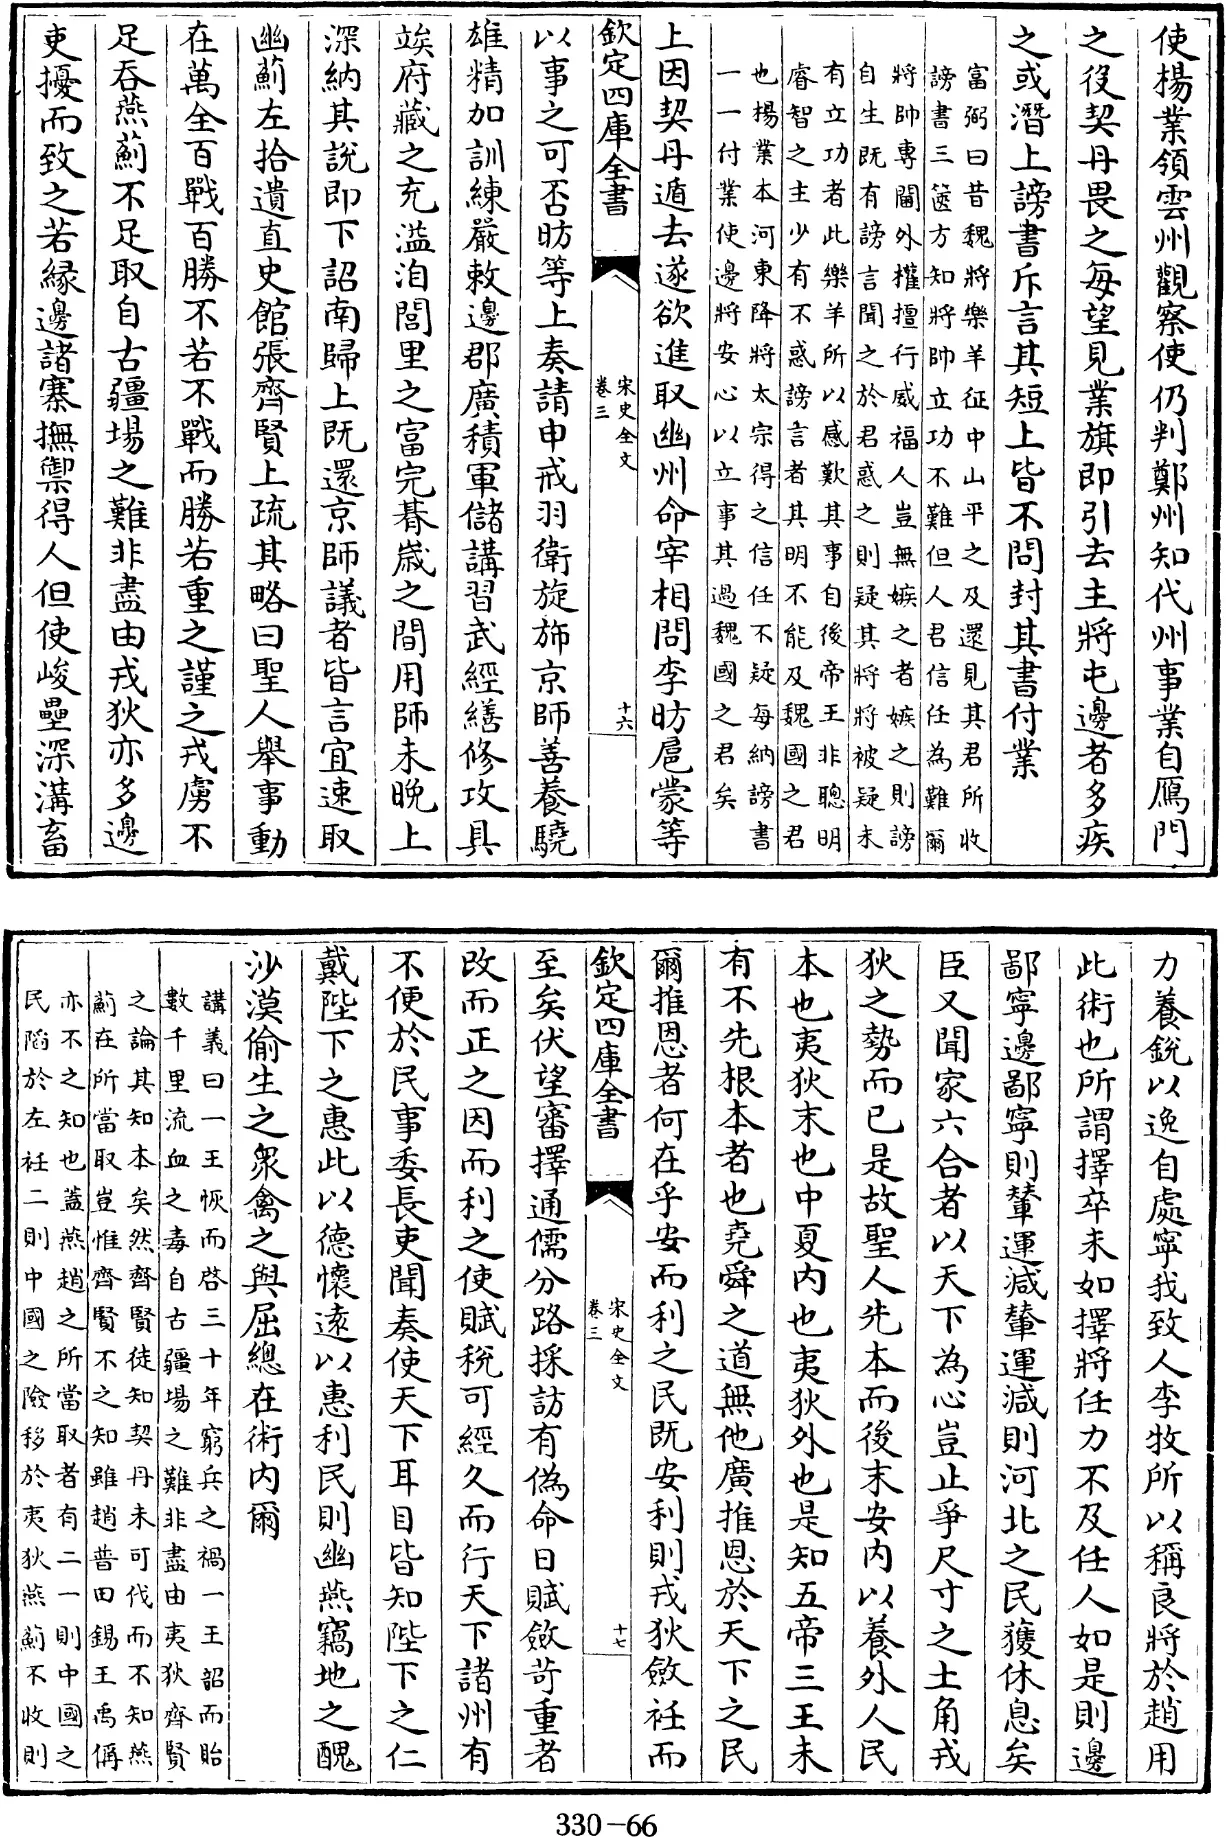 使楊業領雲州觀察使仍判鄭州知代州事業自鴈門
之役契丹畏之每望見業旗即引去主將屯邊者多疾
之或潛上謗書斥言其短上皆不問封其書付業
富弼曰昔魏將樂羊征中山平之及還見其君所收
謗書三篋方知將帥立功不難但人君信任為難爾
將帥專閫外權擅行威福人豈無嫉之者嫉之則謗
自生既有謗言聞之於君惑之則疑其將將被疑未
有立功者此樂羊所以感歎其事自後帝王非聰明
睿智之主少有不惑謗言者其明不能及魏國之君
也楊業本河東降將太宗得之信任不疑每納謗書
一一付業使邊將安心以立事其過魏國之君矣
上因契丹遁去遂欲進取幽州命宰相問李昉扈蒙等
欽定四庫全書
宋史全文
卷三
十六
以事之可否昉等上奏請申戒羽衛旋斾京師善養驍
雄精加訓練嚴敕邊郡廣積軍儲講習武經繕修攻具
竢府藏之充溢洎閭里之富完朞歲之間用師未晚上
深納其說即下詔南歸上既還京師議者皆言宜速取
幽薊左拾遺直史館張齊賢上疏其略曰聖人舉事動
在萬全百戰百勝不若不戰而勝若重之謹之戎虜不
足吞燕薊不足取自古疆場之難非盡由戎狄亦多邊
吏擾而致之若緣邊諸寨撫禦得人但使峻壘深溝畜
力養銳以逸自處寧我致人李牧所以稱良將於趙用
此術也所謂擇卒未如擇將任力不及任人如是則邊
鄙寧邊鄙寧則輦運減輦運減則河北之民獲休息矣
臣又聞家六合者以天下為心豈止爭尺寸之土角戎
狄之勢而已是故聖人先本而後末安內以養外人民
本也夷狄末也中夏內也夷狄外也是知五帝三王未
有不先根本者也堯舜之道無他廣推恩於天下之民
爾推恩者何在乎安而利之民既安利則戎狄斂衽而
欽定四庫全書
宋史全文
卷三
十七
至矣伏望審擇通儒分路採訪有偽命日賦斂苛重者
改而正之因而利之使賦稅可經久而行天下諸州有
不便於民事委長吏聞奏使天下耳目皆知陛下之仁
戴陛下之惠此以德懷遠以惠利民則幽燕竊地之醜
沙漠偷生之衆禽之與屈總在術內爾
講義曰一王恢而啓三十年窮兵之禍一王韶而貽
數千里流血之毒自古疆場之難非盡由夷狄齊賢
之論其知本矣然齊賢徒知契丹未可伐而不知燕
薊在所當取豈惟齊賢不之知雖趙普田錫王禹偁
亦不之知也蓋燕趙之所當取者有二一則中國之
民陷於左衽二則中國之險移於夷狄燕薊不收則
330-66